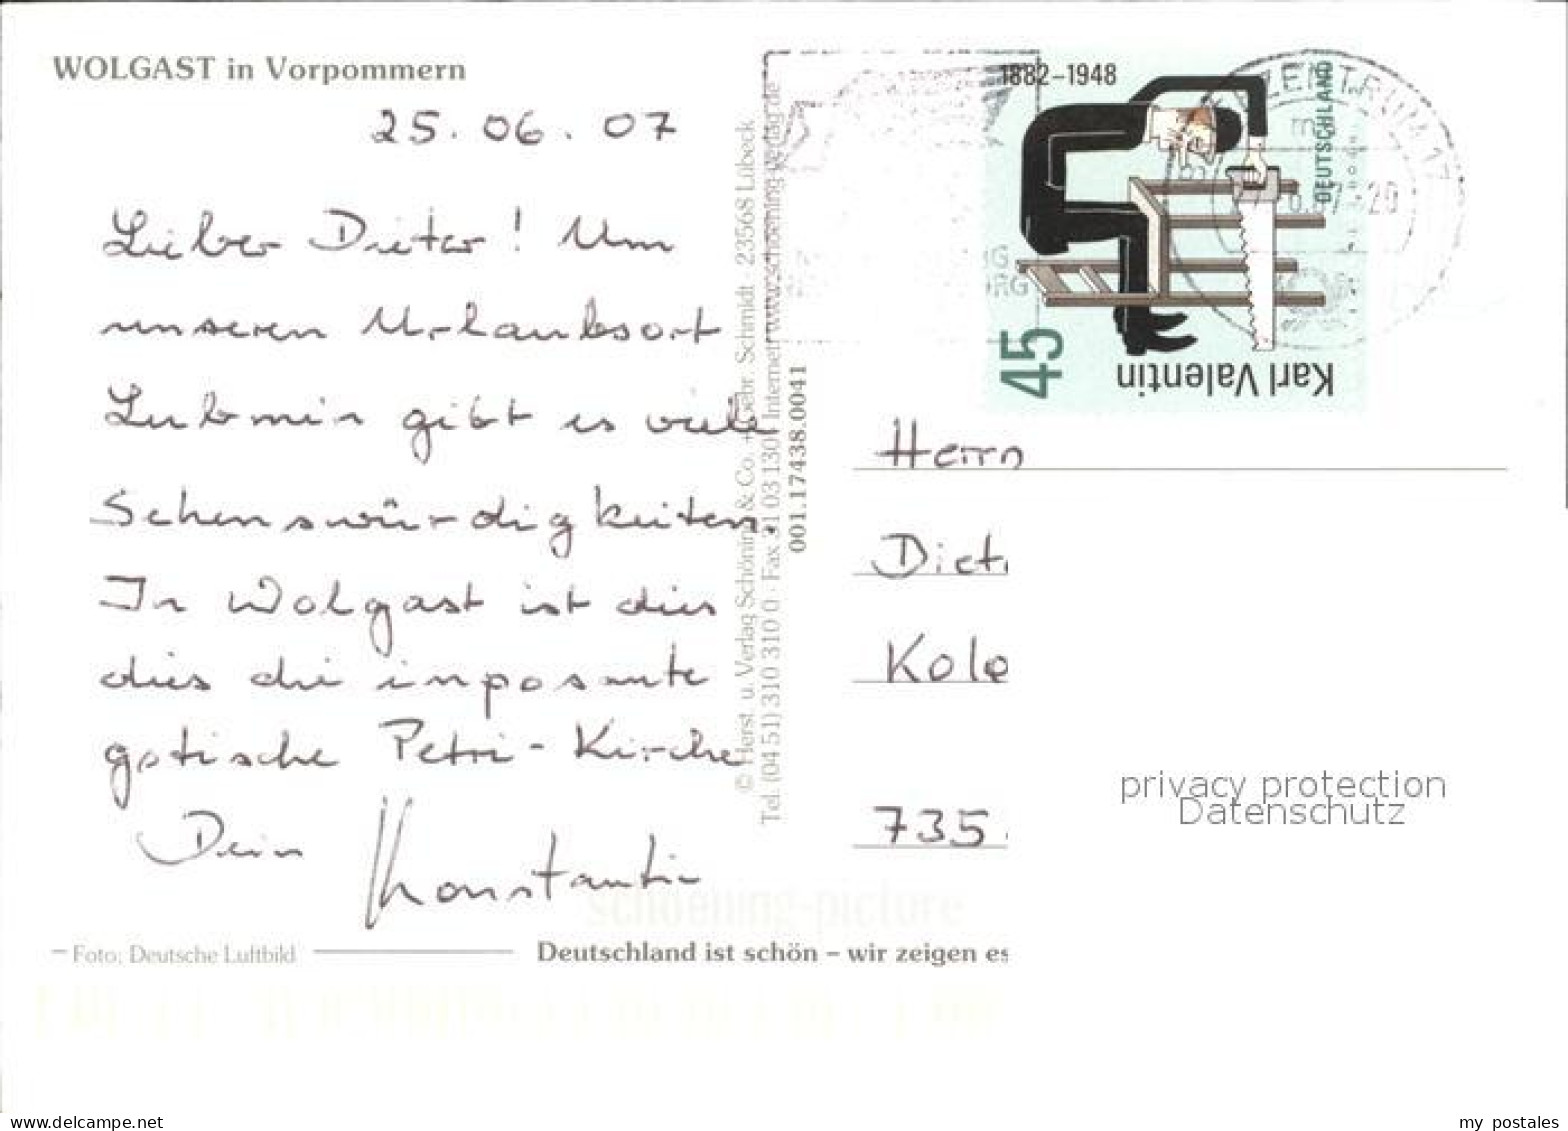 WOLGAST in Vorpommern
25. 06. 07
Lieber Dieter! Um
unseren Urlaubsort
Lubmin gibt es viele
Sehenswürdigkeiten.
In Wolgast ist dies
dies die inposante
gotische Petri-Kirche
Dein Konstantin
Foto: Deutsche Luftbild
Deutschland ist schön – wir zeigen es
schoening-picture
© Herst. u. Verlag Schöning & Co. + Gebr. Schmidt · 23568 Lübeck
Tel. (04 51) 310 310 0 · Fax 31 03 130 · Internet: www.schoening-verlag.de
001.17438.0041
1882–1948
DEUTSCHLAND
45
Karl Valentin
ZENTRUM
Herrn
Diet
Kolo
735
privacy protection
Datenschutz
www.delcampe.net
my_postales